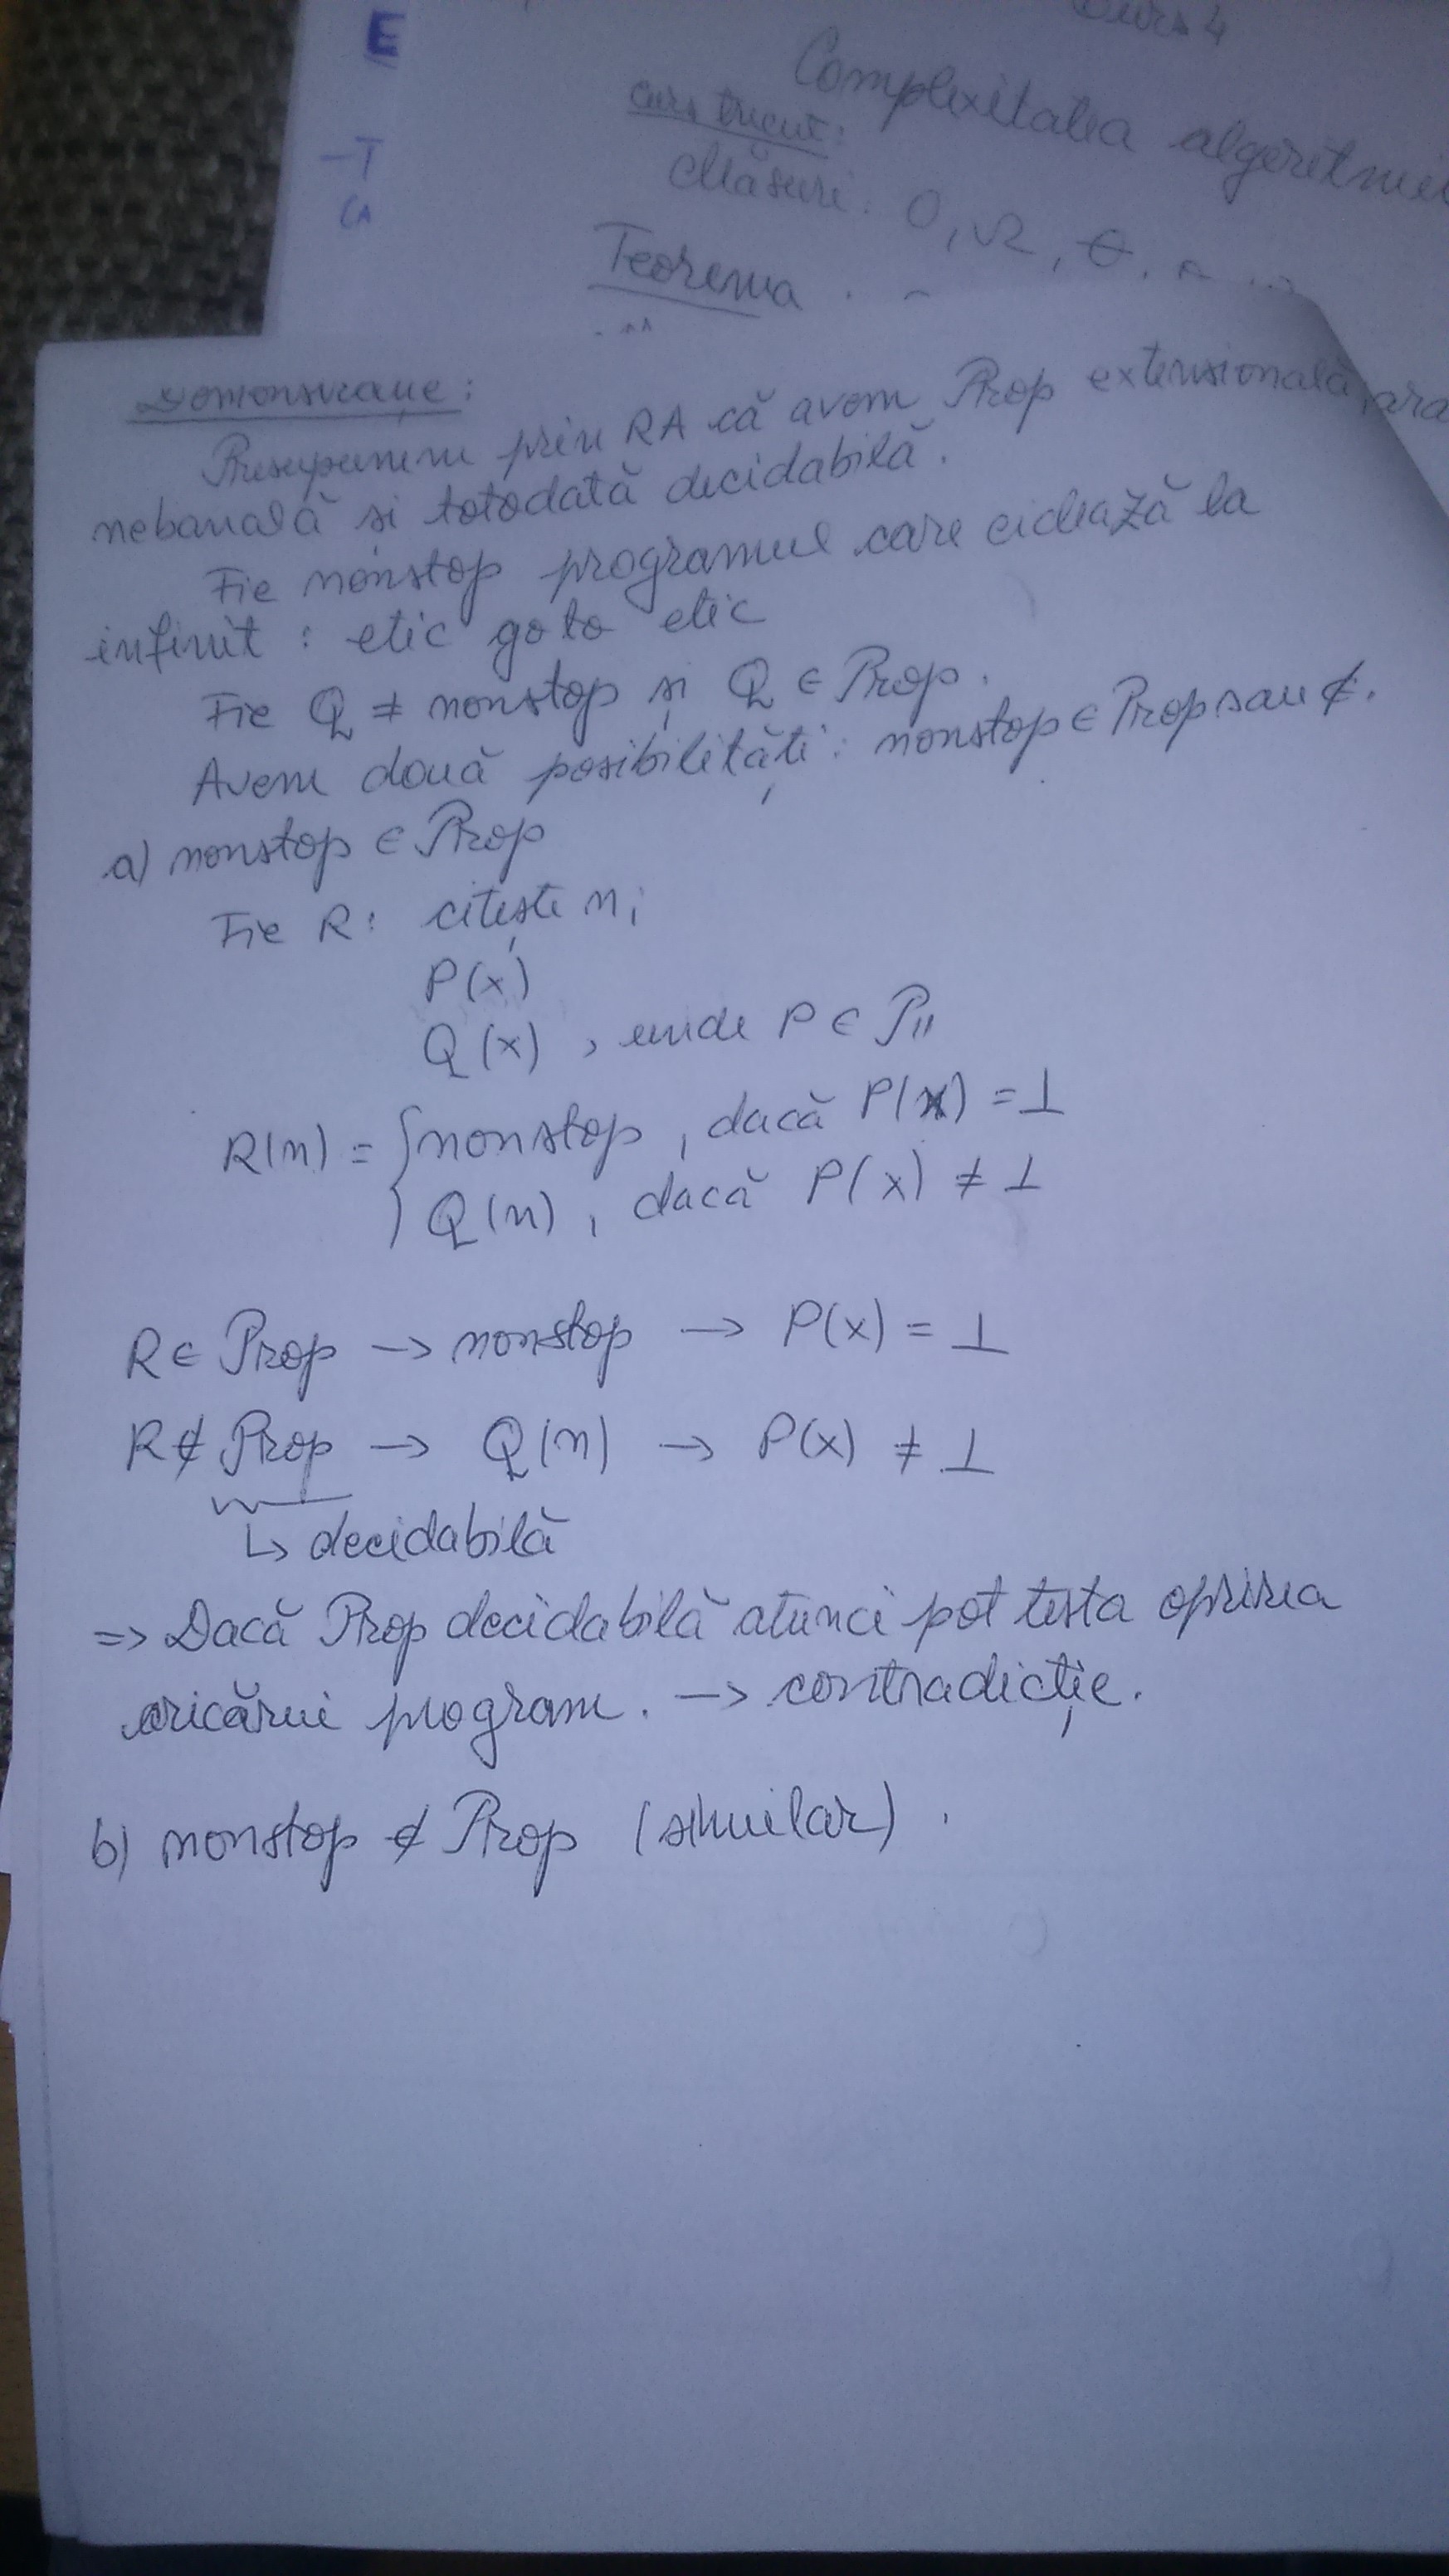 E
-T
Curs 4
Complexitatea algoritmi
curs trecut:
Măsuri: O, Ω, Θ,
Teorema
Demonstrație:
Presupunem prin RA că avem Prop extensională,
nebanală și totodată decidabilă.
Fie nonstop programul care ciclează la
infinit: etic go to etic
Fie Q ≠ nonstop și Q ∈ Prop.
Avem două posibilități: nonstop ∈ Prop sau ∉.
a) nonstop ∈ Prop
Fie R: citește n;
P(x)
Q(x), unde P ∈ P
R(n) = { nonstop, dacă P(x) = ⊥
Q(n), dacă P(x) ≠ ⊥
R ∈ Prop → nonstop → P(x) = ⊥
R ∉ Prop → Q(n) → P(x) ≠ ⊥
↳ decidabilă
=> Dacă Prop decidabilă atunci pot testa oprirea
oricărui program. → contradicție.
b) nonstop ∉ Prop (similar).